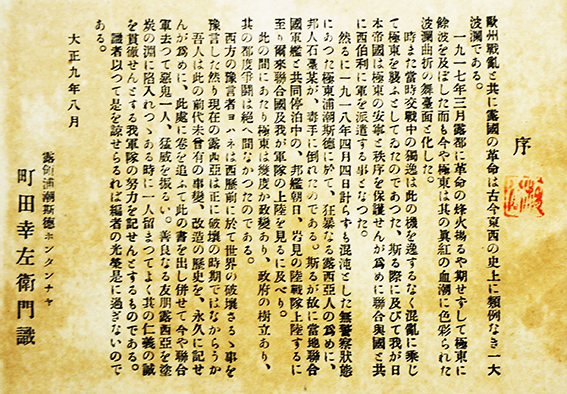 序
歐州戰亂と共に露國の革命は古今東西の史上に類例なき一大
波瀾である。
一九一七年三月露都に革命の烽火揚るや期せずして極東に
餘波を及ぼした而も今や極東は其の眞紅の血潮に色彩られた
波瀾曲折の舞臺面と化した。
時また當時交戰中の獨逸は此の機を逸するなく混亂に乘じ
て極東を襲ふとしてゐたのであつた、斯る際に及びて我が日
本帝國は極東の安寧と秩序を保護せんが爲めに聯合與國と共
に西伯利に軍を派遣する事となつた。
然るに一九一八年四月四日計らずも混沌とした無警察狀態
にあつた極東浦潮斯德に於て、狂暴なる露西亞人の爲めに、
邦人石臺某が、毒手に倒れたのである、斯るが故に當地聯合
國軍艦と共同停泊中の、邦艦朝日、岩見の陸戰隊上陸するに
至り爾來聯合國及我が軍隊の上陸を見るに及べり。
此の間にあたり極東は幾度か政變あり、政府の樹立あり、
其の都度爭鬪は絕へ間なかつたのである。
西方の豫言者ヨハネは西曆前に於て世界の破壞さるゝ事を
豫言した然り現在の露西亞は正に破壞の時期ではなからうか
吾人は此の前代未曾有の事變、改造の歷史を、永久に記せ
んが爲めに、此處に卷を追ふて此の書を出し併せて今や聯合
軍去つて惡鬼一人、猛威を振るい。善良なる友朋露西亞を塗
炭の淵に陷入れつゝある時に一人留まつてよく其の仁義の誠
を貫徹せんとする我軍隊の努力を記せんとするものである。
識者以つて是を諒せらるれば編者の光榮是に過ぎないので
ある。
大正九年八月
露領浦潮斯德ホンタンナヤ
町田幸左衞門識